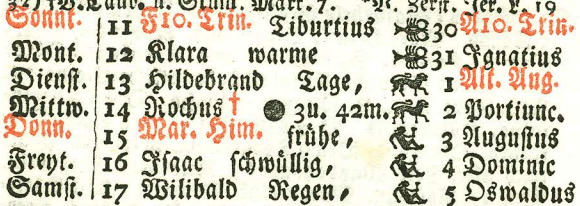 Sonnt. 11 F10. Trin. Tiburtius 30 A10. Trin.
Mont. 12 Klara warme 31 Ignatius
Dienſt. 13 Hildebrand Tage, 1 Alt. Aug.
Mittw. 14 Rochus † ● 3u. 42m. 2 Portiunc.
Donn. 15 Mar. Him. frühe, 3 Auguſtus
Freyt. 16 Iſaac ſchwüllig, 4 Dominic
Samſt. 17 Wilibald Regen, 5 Oswaldus